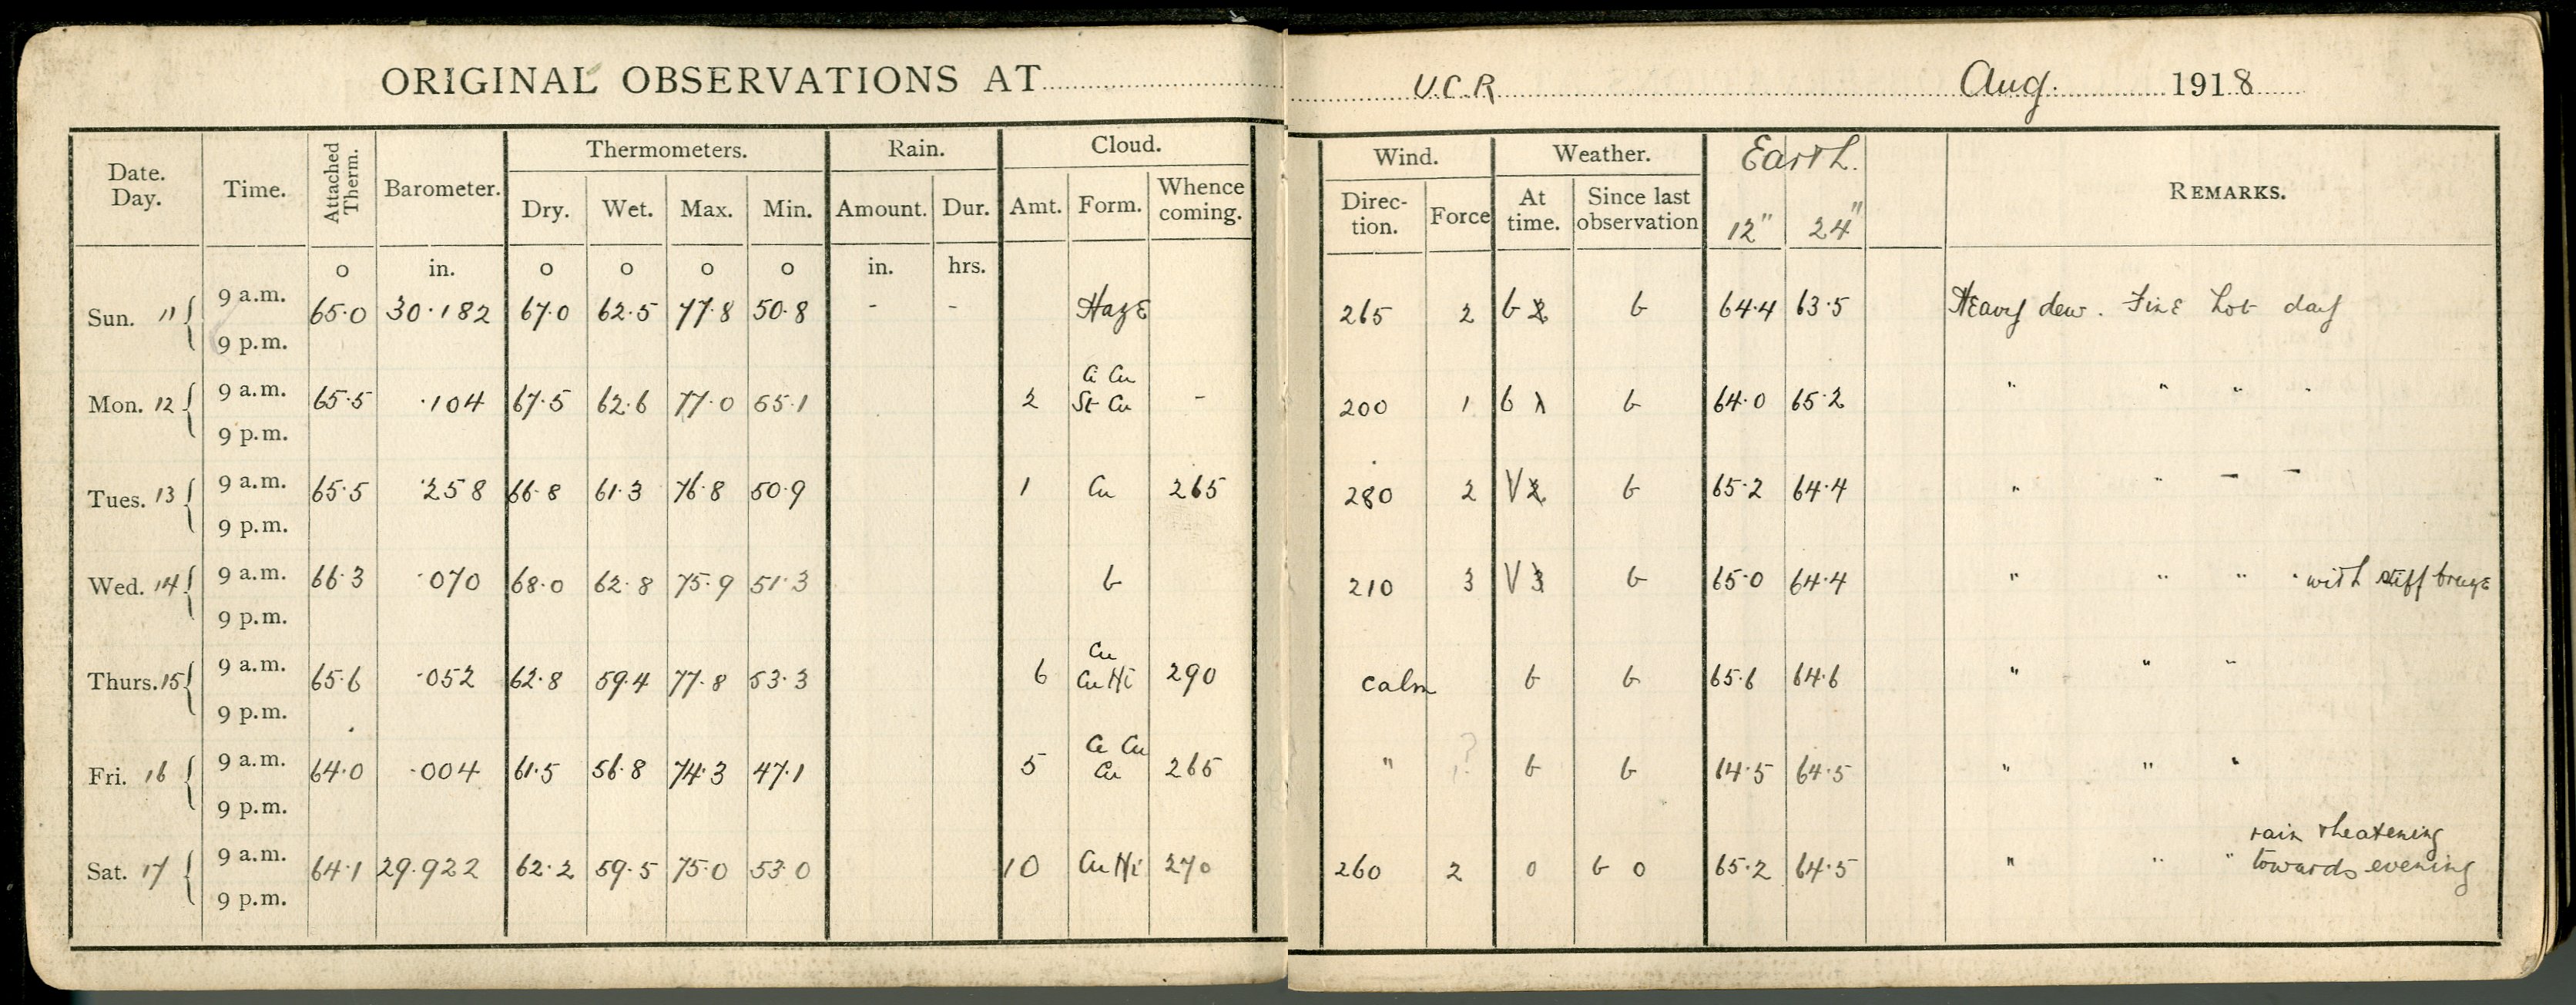 ORIGINAL OBSERVATIONS AT U.C.R. Aug. 1918
Date. Day. Time. Attached Therm. Barometer. Thermometers. Rain. Cloud. Wind. Weather. Earth. REMARKS.
Dry. Wet. Max. Min. Amount. Dur. Amt. Form. Whence coming. Direc- tion. Force At time. Since last observation 12" 24"
o in. o o o o in. hrs.
Sun. 11 9 a.m. 65.0 30.182 67.0 62.5 77.8 50.8 - - Haze 265 2 b b 64.4 63.5 Heavy dew. Fine hot day
9 p.m.
Ci Cu
Mon. 12 9 a.m. 65.5 .104 67.5 62.6 77.0 55.1 2 St Cu - 200 1 b b 64.0 65.2 " " " "
9 p.m.
Tues. 13 9 a.m. 65.5 .258 66.8 61.3 76.8 50.9 1 Cu 265 280 2 V b 65.2 64.4 " " - -
9 p.m.
Wed. 14 9 a.m. 66.3 .070 68.0 62.8 75.9 51.3 b 210 3 V b 65.0 64.4 " " " " with stiff breeze
9 p.m.
Cu
Thurs. 15 9 a.m. 65.6 .052 62.8 59.4 77.8 53.3 6 Cu Ni 290 calm b b 65.6 64.6 " " "
9 p.m.
Ci Cu
Fri. 16 9 a.m. 64.0 .004 61.5 56.8 74.3 47.1 5 Cu 265 " ? b b 64.5 64.5 " " "
9 p.m.
rain theatening
Sat. 17 9 a.m. 64.1 29.922 62.2 59.5 75.0 53.0 10 Cu Ni 270 260 2 o b o 65.2 64.5 " " " towards evening
9 p.m.